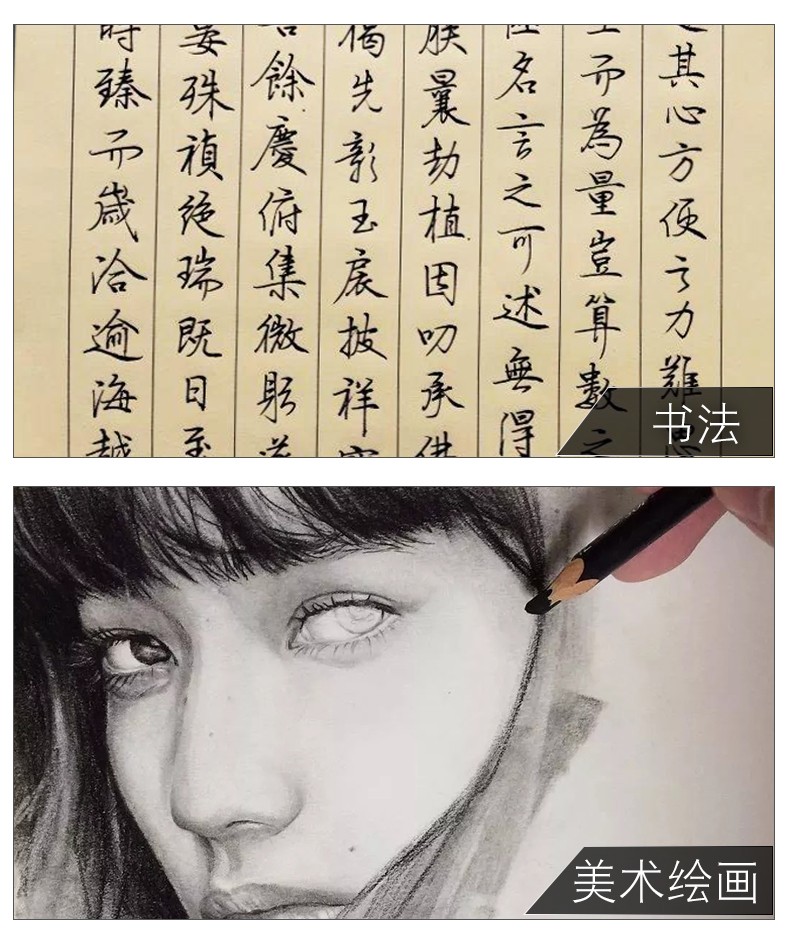 其心方便之力難思
而為量豈算數之
名言之可述無得
朕曩劫植因叨承佛
偈先彰玉扆披祥
餘慶俯集微躬
晏殊禎絕瑞既日至
時臻而歲洽逾海越
书法
美术绘画